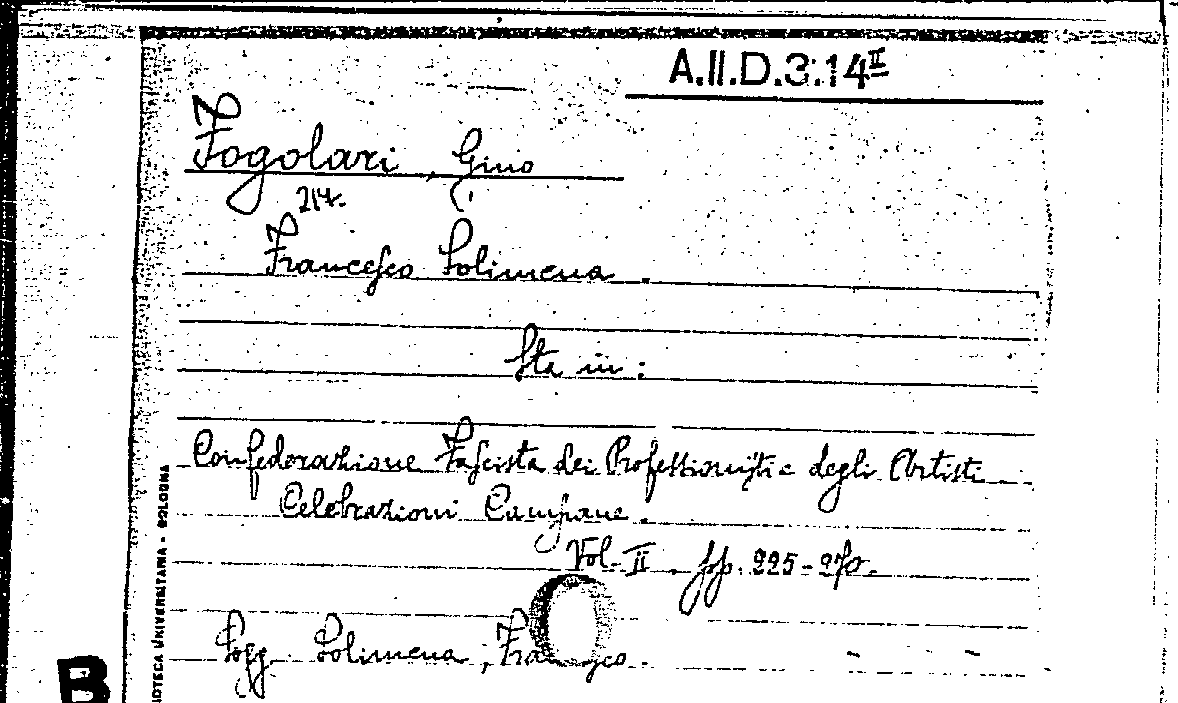 A.II.D.3.14 II
Fogolari, Gino
214.
Francesco Solimena.
Sta in:
Confederazione Fascista dei Professionisti e degli Artisti
Celebrazioni Campane.
Vol. II. pp. 225-270.
Sogg. Solimena, Francesco.
IOTECA UNIVERSITARIA - BOLOGNA
B